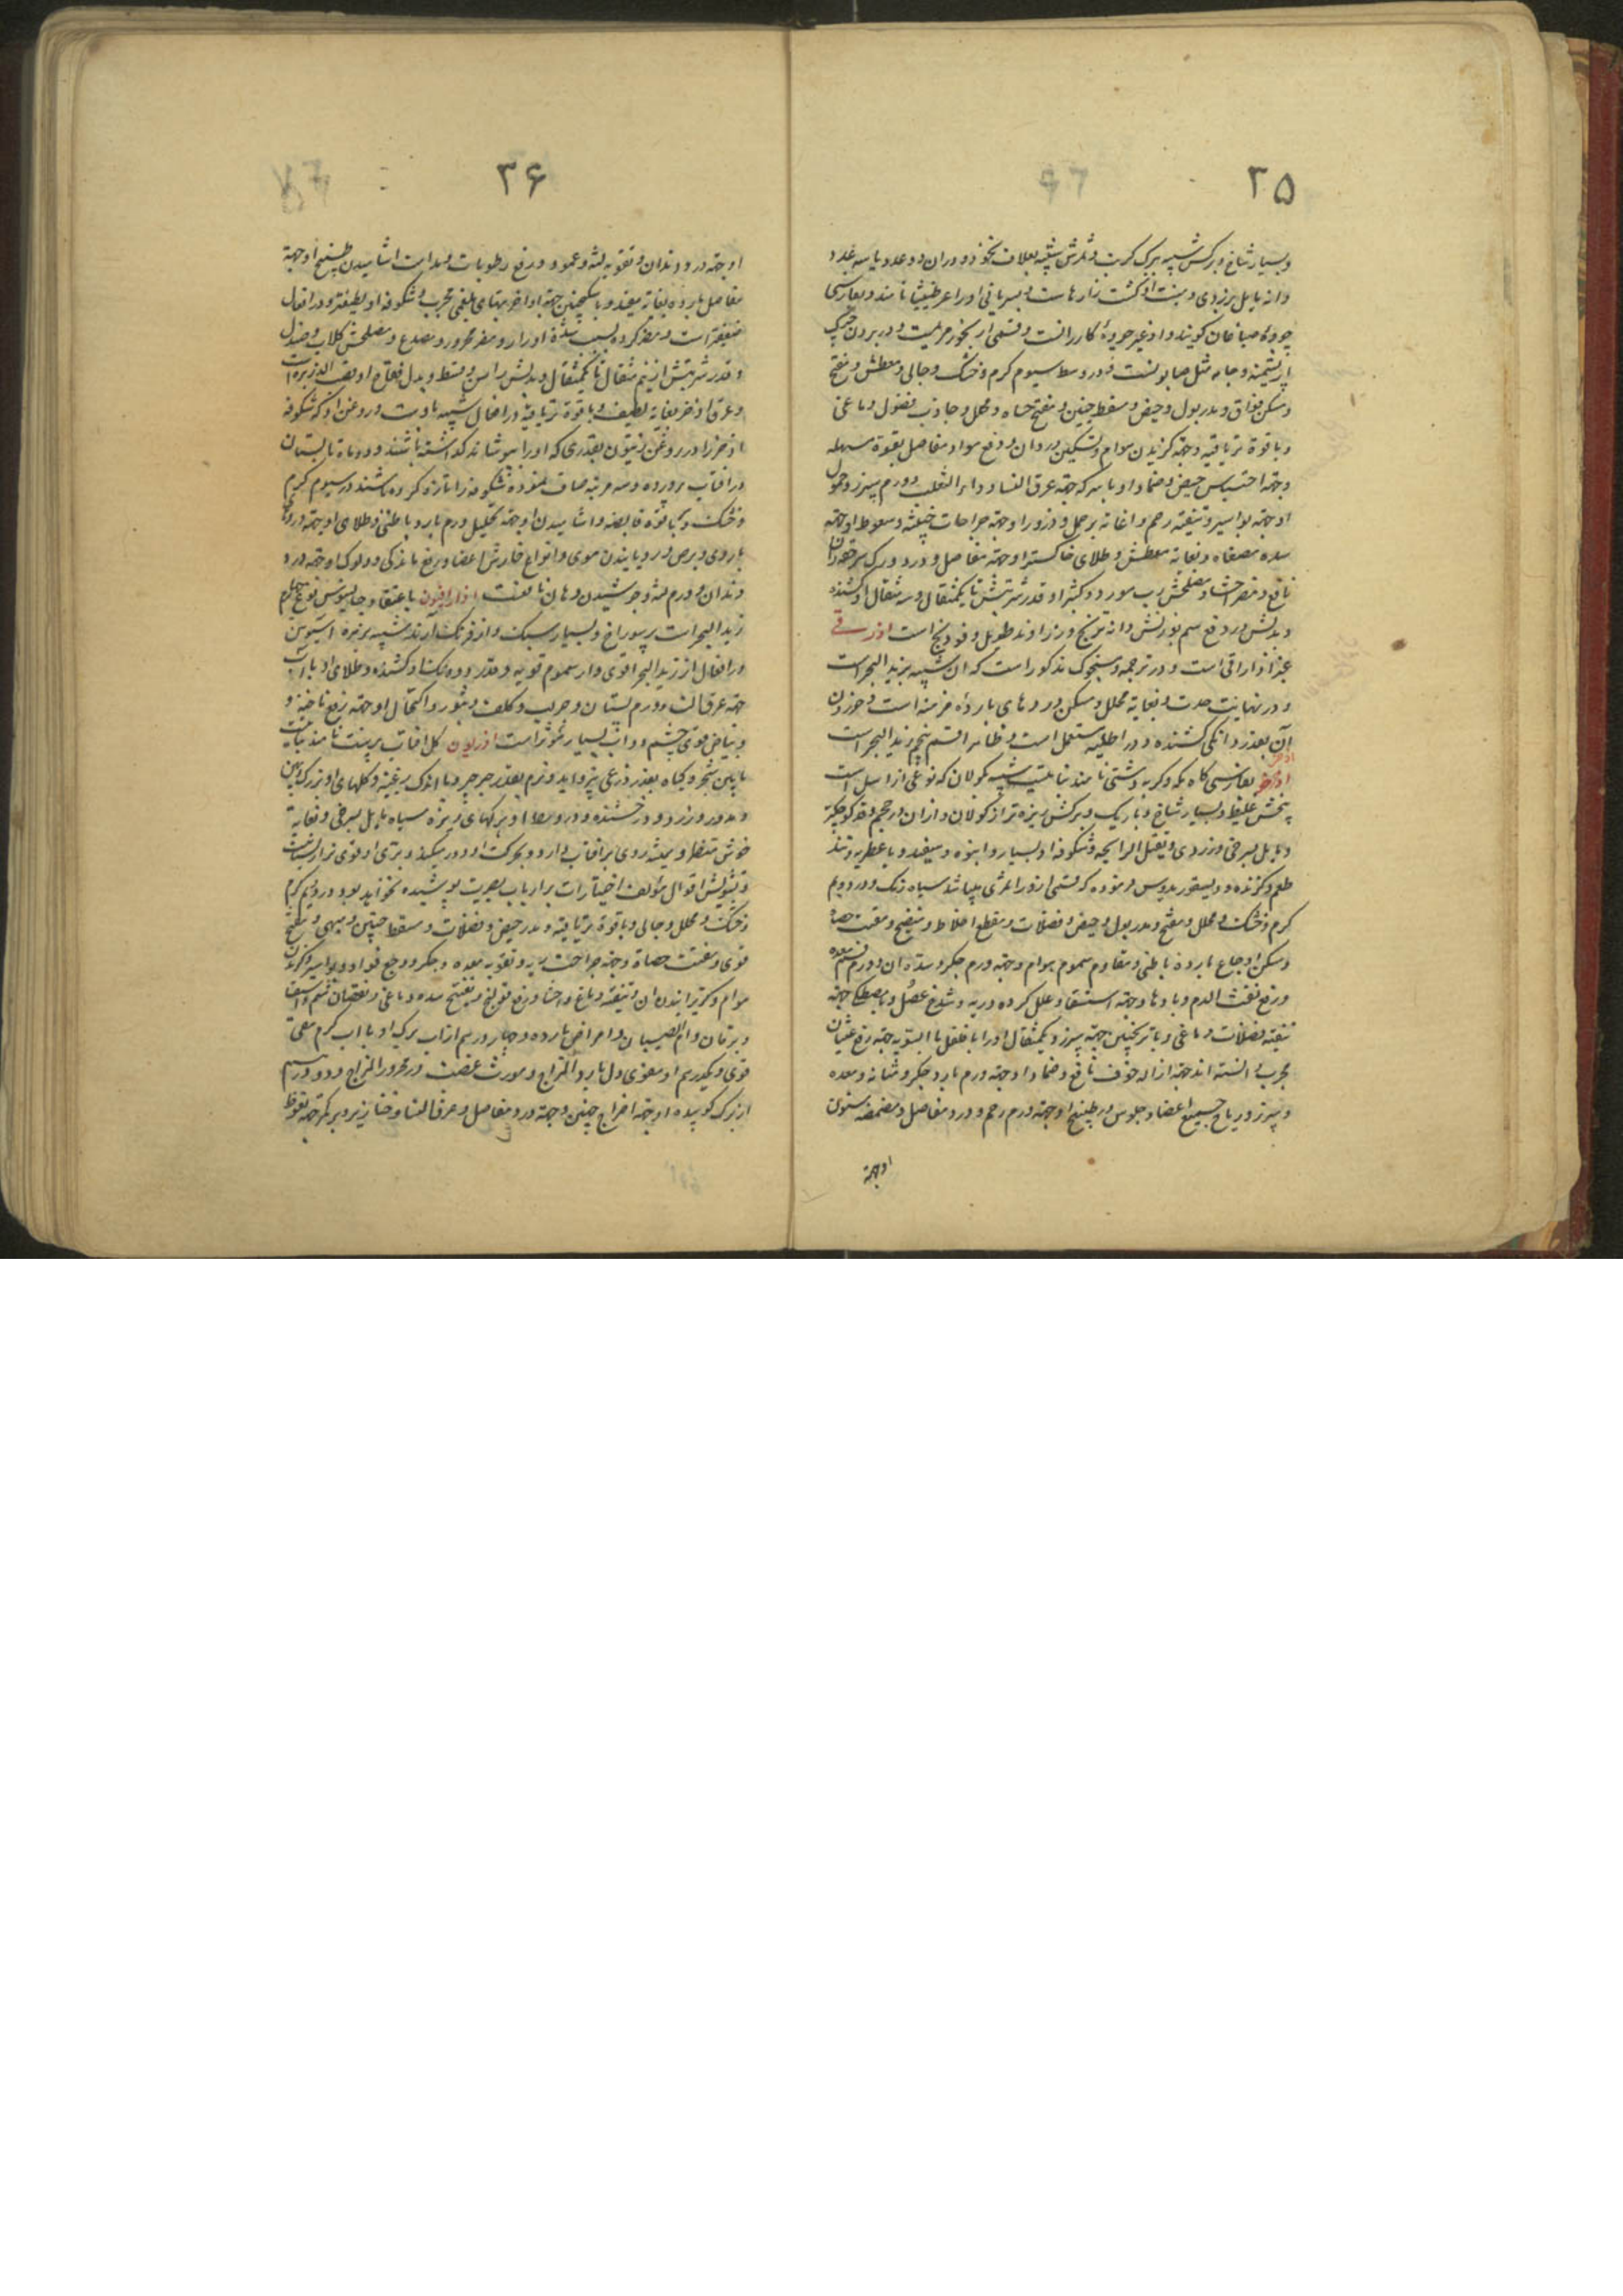 ۲۵
و بسیار شاخ و برکش شبیه ببرک کرب و ثمرش شبیه بغلاف نخود و در ان دو عدد یا سه عدد
دانه مایل بزردی و منبت او کشت زارهاست و بسریانی او را عرطنیثا نامند و بفارسی
چوبک صباغان کویند و او غیر چوبک کازرانست و قسمی از بخور مریمست و در بردن چرک
از پشمینه و جامه مثل صابونست و در وسط سیوم کرم و خشک و جالی و معطش و مفتح
و مسکن فواق و مدر بول و حیض و مسقط جنین و مفتح حصاه و محلل و جاذب فضول دماغی
و با قوة تریاقیه و جهة کزیدن هوام و تسکین درد ان و دفع مواد مفاصل بقوة مسهله
و جهة احتباس حیض و ضماد او با سرکه جهة عرق النسا و داء الثعلب و ورم سپرز و حمول
او جهة بواسیر و تنقیه رحم و اعانه بر حمل و ذرور او جهة جراحات خبیثه و سعوط او جهة
سده مصفاه و بغایه معطش و طلای خاکستر او جهة مفاصل و درد ورک
نافع و مضر احشا و مصلحش رب مورد و کثیرا و قدر شربتش تا یکمثقال و سه مثقال او کشنده
و بدلش در دفع سم بوزنش دانه ترنج و زراوند طویل و فودنج است اذرسقی
غیر اذاراقی است و در ترجمه سنجوک مذکور است که ان شبیه بزبد البحر است
و در نهایت حدت و بغایه محلل و مسکن دردهای بارده مزمنه است و خوردن
آن بقدر دانکی کشنده و در اطلیه مستعمل است و ظاهرا قسم پنجم زبد البحر است
اذخر بفارسی کاه مکه و کربه دشتی نامند نباتیست شبیه بکولان که نوعی از اسل است
بیخش غلیظ و بسیار شاخ و باریک و برکش ریزه تر از کولان و از ان در حجم و قد کوچکتر
و مایل بسرخی و زردی و ثقیل الرایحه و شکوفه او بسیار و انبوه و سفید و با عطریه و تند
طعم و کزنده و دیسقوریدوس فرموده که قسمی از و را ثمری میباشد سیاه رنک و در دویم
کرم و خشک و محلل و مفتح و مدر بول و حیض و فضلات و مقطع اخلاط و منضج و مفتت حصاه
و مسکن اوجاع بارده باطنی و مقاوم سموم هوام و جهة ورم جکر و سده ان و ورم فم معده
و رفع نفث الدم و بادها و جهة استسقا و علل کرده و ریه و شدخ عضل و با مصطکی جهة
تنقیه فضلات دماغی و با ترنجبین جهة سپرز و یکمثقال او را با فلفل بالسویه جهة رفع غثیان
مجرب دانسته اند جهة ازاله خوف نافع و ضماد او جهة ورم بارد جکر و مثانه و معده
و سپرز و ریاح جمیع اعضا و جلوس در طبیخ او جهة ورم رحم و درد مفاصل و مضمضه سنون
او جهة
۳۶
او جهة درد دندان و تقویه لثه و عمور و رفع رطوبات مدام است اشامیدن طبیخ او جهة
مفاصل بارده بغایه مفید و با سکنجبین جهة اواخر تبهای بلغمی مجرب و شکوفه او لطیفتر و در افعال
ضعیفتر است و مضر کرده بسبب شدة ادرار و مضر محرور و مصدع و مصلحش کلاب و صندل
و قدر شربتش از نیم مثقال تا یکمثقال و بدلش راسن و قسط و بدل فقاح او قصب الذریره است
و عرق اذخر بغایه لطیف و با قوة تریاقیه و در افعال شبیه باوست و روغن او که شکوفه
اذخر را در روغن زیتون بقدری که او را بپوشاند کذاشته باشند و دو ماه تابستان
در افتاب پرورده و سه مرتبه صاف نموده شکوفه را تازه کرده باشند در سیوم کرم
و خشک و با قوة قابضه و اشامیدن او جهة تحلیل ورم بارد باطنی و طلای او جهة دردهای
بارد و برص و رویانیدن موی و انواع خارش اعضا و رفع ماندکی و دلوک او جهة درد
دندان و ورم لثه و جوشیدن دهان نافعست اذارافیون باعتقاد جالینوس نوع چهارم
زبد البحر است پرسوراخ و بسیار سبک و از فرنک آرند شبیه بزهره اسیوس
در افعال از زبد البحر اقوی و از سموم قویه و قدر دو دانک او کشنده و طلای او با آب
جهة عرق النسا و ورم پستان و جرب و کلف و بثور و اکتحال او جهة رفع ناخنه و
و بیاض قوی چشم دواب بسیار مؤثر است اذریون کل افتاب پرست نامند نباتیست
مابین شجر و کیاه بقدر ذرعی برکش دراز و نرم بقدر جرجیر و با اندک زغبیه و کلهای او بزرک و پهن
و مدور و زرد و درخشنده و در وسط او برکهای ریزه سیاه مایل بسرخی و بغایة
خوش منظر و همیشه روی بر افتاب دارد و بحرکت او دور میکند و بری او قوی تر از بستانیست
و تشویش اقوال مؤلف اختیارات بر ارباب بصیرت پوشیده نخواهد بود در دویم کرم
و خشک و محلل و جالی و با قوة تریاقیه و مدر حیض و فضلات و مسقط جنین و مبهی و مفتح
قوی و مفتت حصاة و جهة جراحت ریه و تقویه معده و جکر و وجع فواد و بواسیر و کزیدن
هوام و کریزانیدن ان و تنقیه دماغ و احشا و رفع قولنج و تفتیح سده دماغی و نقصان شم و استسقا
و یرقان و ام الصبیان و امراض بارده و چهار درهم از اب برک او با اب کرم مقی
قوی و یکدرهم او مقوی دل بارد المزاج و مورث غضب در محرور المزاج و دو درهم
از برک کوبیده او جهة اخراج جنین و جهة درد مفاصل و عرق النسا و خنازیر و بر کمر جهة نعوظ